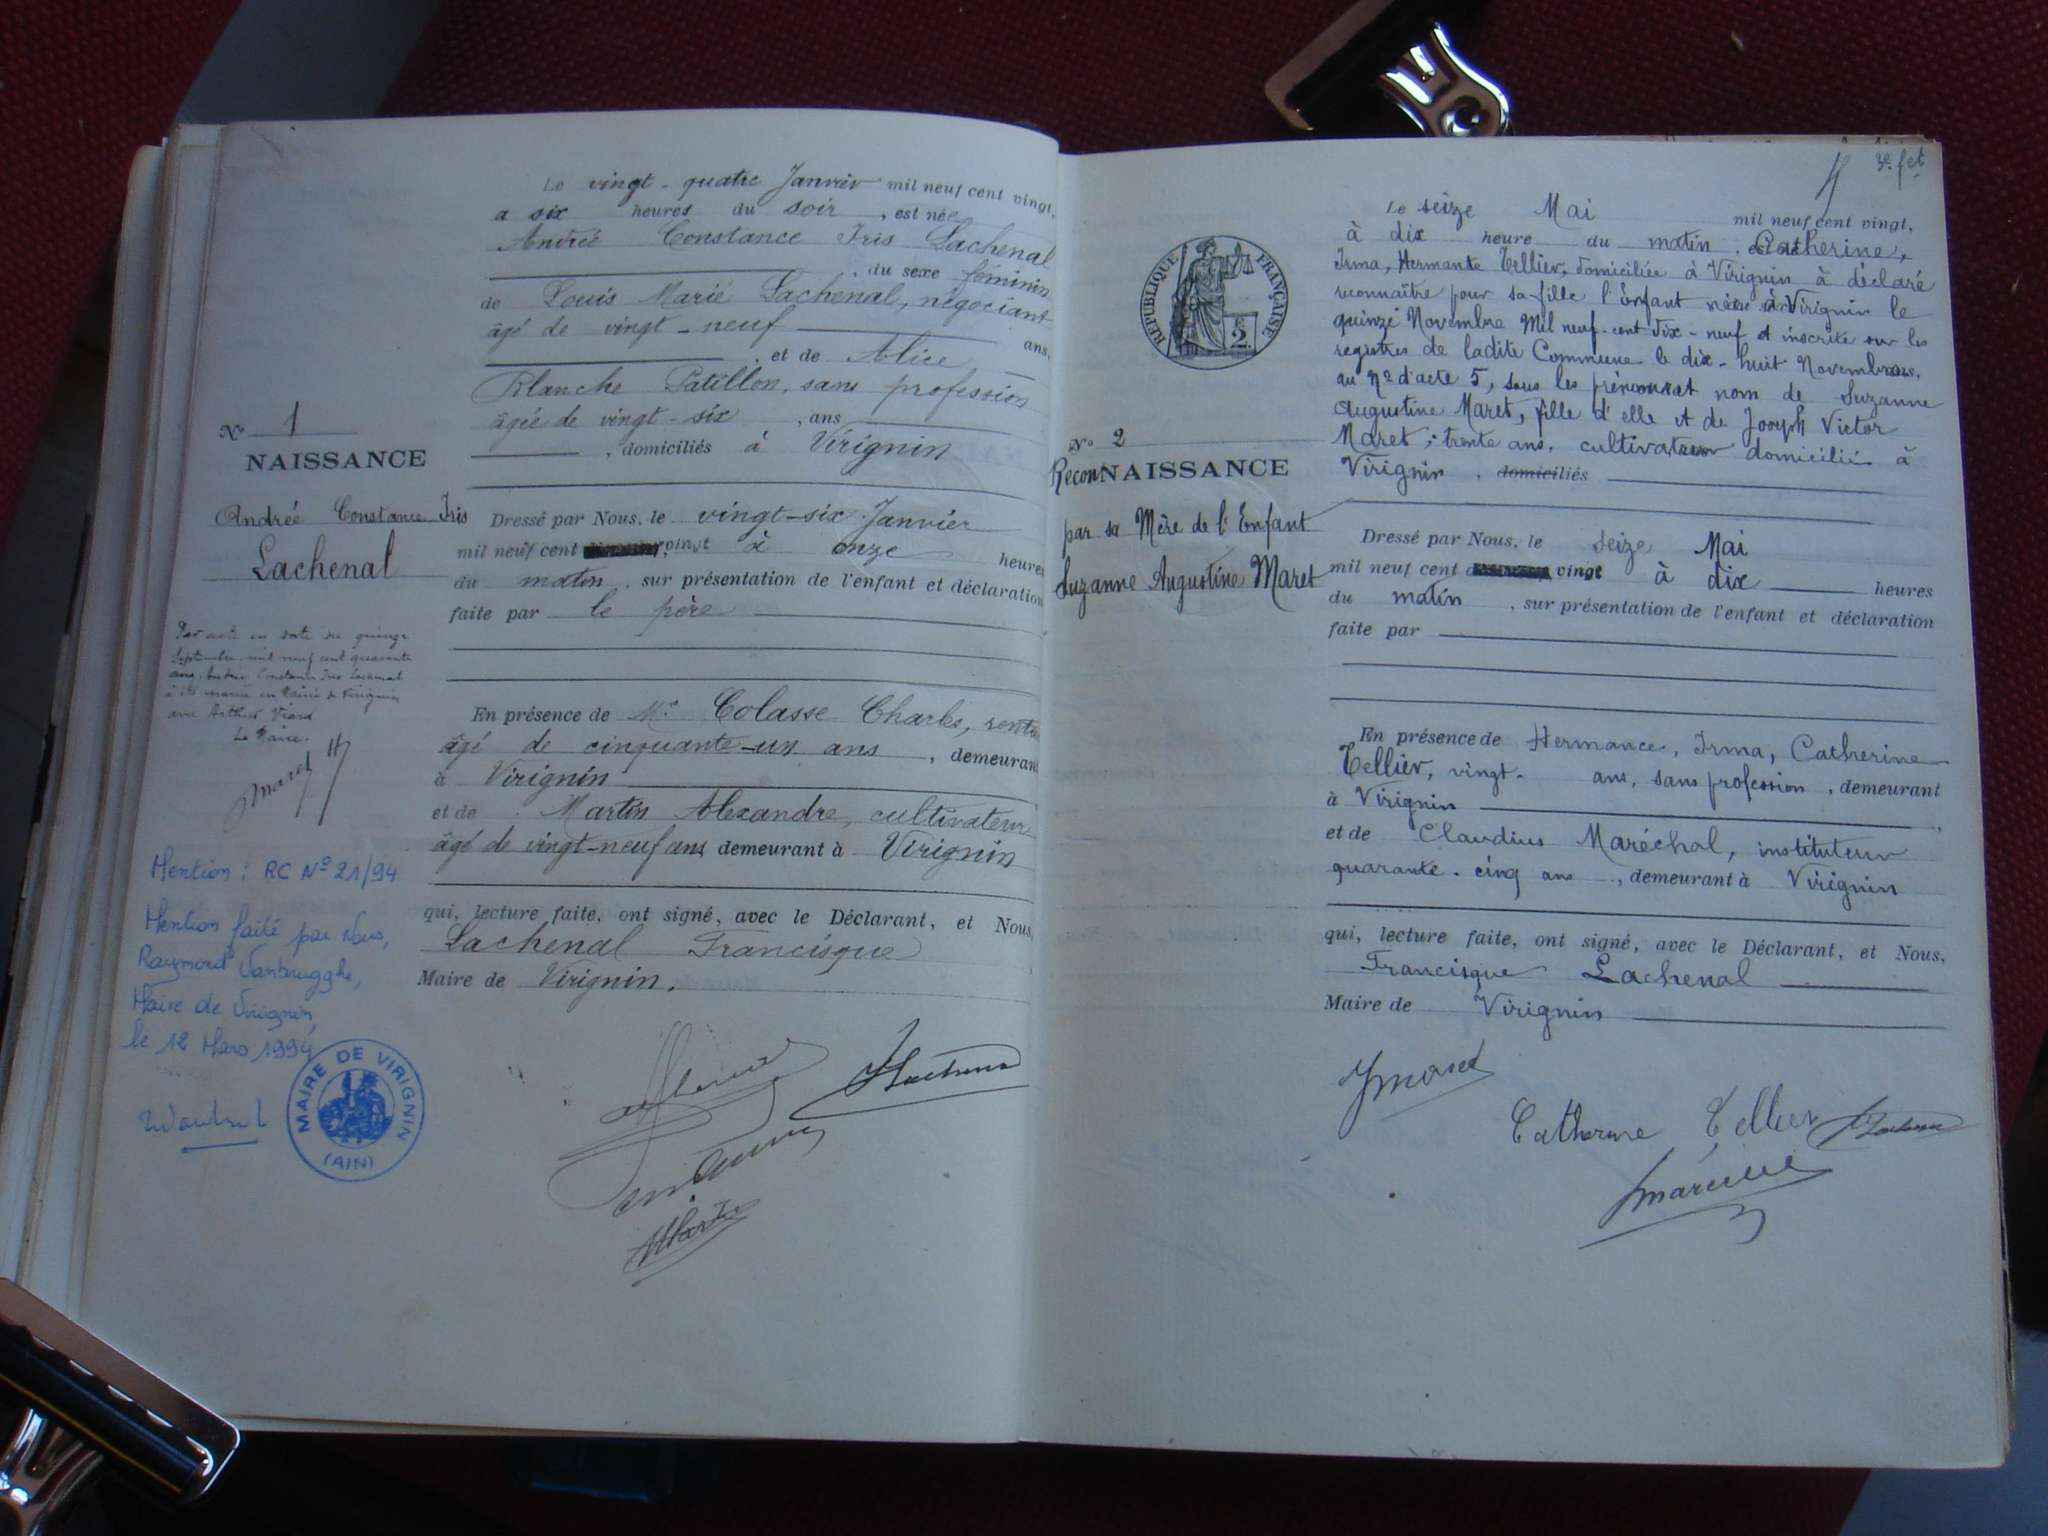 Le vingt-quatre Janvier mil neuf cent vingt,
a six heures du soir, est née
Andrée Constance Iris Lachenal
, du sexe féminin
de Louis Marie Lachenal, négociant
âgé de vingt-neuf ans,
, et de Alice
Blanche Patillon, sans profession
âgée de vingt-six, ans
, domiciliés à Virignin
N° 1
NAISSANCE
Andrée Constance Iris
Lachenal
Dressé par Nous, le vingt-six Janvier
mil neuf cent vingt à onze heures
du matin, sur présentation de l'enfant et déclaration
faite par le père
Par acte en date du quinze
Septembre mil neuf cent quarante
Constance Iris Lachenal
à été mariée en Mairie de Virignin
avec Arthur Viard
Le Maire.
Maret
En présence de Mr Colasse Charles, rentier
âgé de cinquante-un ans, demeurant
à Virignin
et de Martin Alexandre, cultivateur
âgé de vingt-neuf ans demeurant à Virignin
qui, lecture faite, ont signé, avec le Déclarant, et Nous,
Lachenal Francisque
Maire de Virignin.
Mention : RC N° 21/94
Mention faite par Nous,
Raymond Vanbrugghe,
Maire de Virignin,
le 12 Mars 1994
MAIRE DE VIRIGNIN
(AIN)
3e. fet
RÉPUBLIQUE FRANÇAISE
2
Le seize Mai mil neuf cent vingt,
à dix heure du matin, Catherine,
Irma, Hermante Tellier, domiciliée à Virignin à déclaré
reconnaître pour sa fille l'Enfant née à Virignin le
quinze Novembre Mil neuf-cent dix-neuf et inscrite sur les
registres de ladite Commune le dix-huit Novembre
au N° d'acte 5, sous les prénoms et nom de Suzanne
Augustine Maret, fille d'elle et de Joseph Victor
Maret, trente ans, cultivateur domiciliés à
Virignin, domiciliés
N° 2
ReconNAISSANCE
par sa Mère de l'Enfant
Suzanne Augustine Maret
Dressé par Nous, le seize Mai
mil neuf cent vingt à dix heures
du matin, sur présentation de l'enfant et déclaration
faite par
En présence de Hermance, Irma, Catherine
Tellier, vingt- ans, sans profession, demeurant
à Virignin
et de Claudius Maréchal, instituteur
quarante-cinq ans, demeurant à Virignin
qui, lecture faite, ont signé, avec le Déclarant, et Nous,
Francisque Lachenal
Maire de Virignin
JMaret
Catherine Tellier